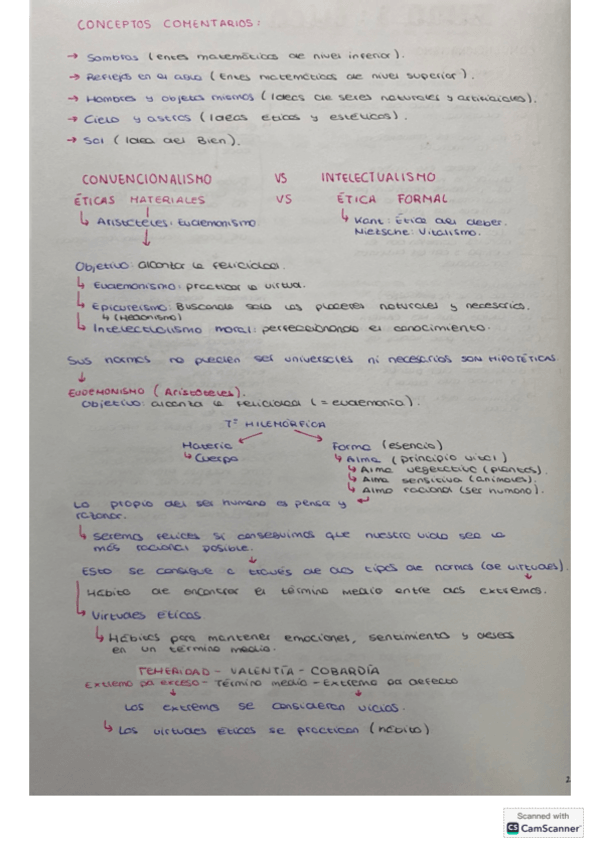 CONCEPTOS COMENTARIOS:
→ Sombras (entes matemáticos de nivel inferior).
→ Reflejos en el agua (Entes matemáticos de nivel superior).
→ Hombres y objetos mismos (Ideas de seres naturales y artificiales).
→ Cielo y astros (Ideas éticas y estéticas).
→ Sol (Idea del Bien).
CONVENCIONALISMO VS INTELECTUALISMO
ÉTICAS MATERIALES VS ÉTICA FORMAL
↳ Aristóteles: Eudemonismo.
↳ Kant: Ética del deber.
Nietzsche: Vitalismo.
Objetivo: alcanzar la felicidad.
↳ Eudemonismo: practicar la virtud.
↳ Epicureísmo: Buscando solo los placeres naturales y necesarios.
↳ (Hedonismo)
↳ Intelectualismo moral: perfeccionando el conocimiento.
Sus normas no pueden ser universales ni necesarias SON HIPOTÉTICAS.
↓
EUDEMONISMO (Aristóteles).
Objetivo: alcanza la felicidad (= eudemonia).
Tª HILEMÓRFICA
Materia Forma (esencia)
↳ Cuerpo ↳ Alma (principio vital)
↳ Alma vegetativa (plantas).
↳ Alma sensitiva (animales).
↳ Alma racional (ser humano).
Lo propio del ser humano es pensar y
razonar.
↳ Seremos felices si conseguimos que nuestra vida sea lo
más racional posible.
Esto se consigue a través de dos tipos de normas (de virtudes).
Hábito de encontrar el término medio entre dos extremos.
↳ Virtudes éticas.
↳ Hábitos para mantener emociones, sentimiento y deseos
en un término medio.
TEMERIDAD - VALENTÍA - COBARDÍA
Extremo por exceso - Término medio - Extremo por defecto
Los extremos se consideran vicios.
↳ Las virtudes éticas se practican (hábito)
2
Scanned with
CS CamScanner